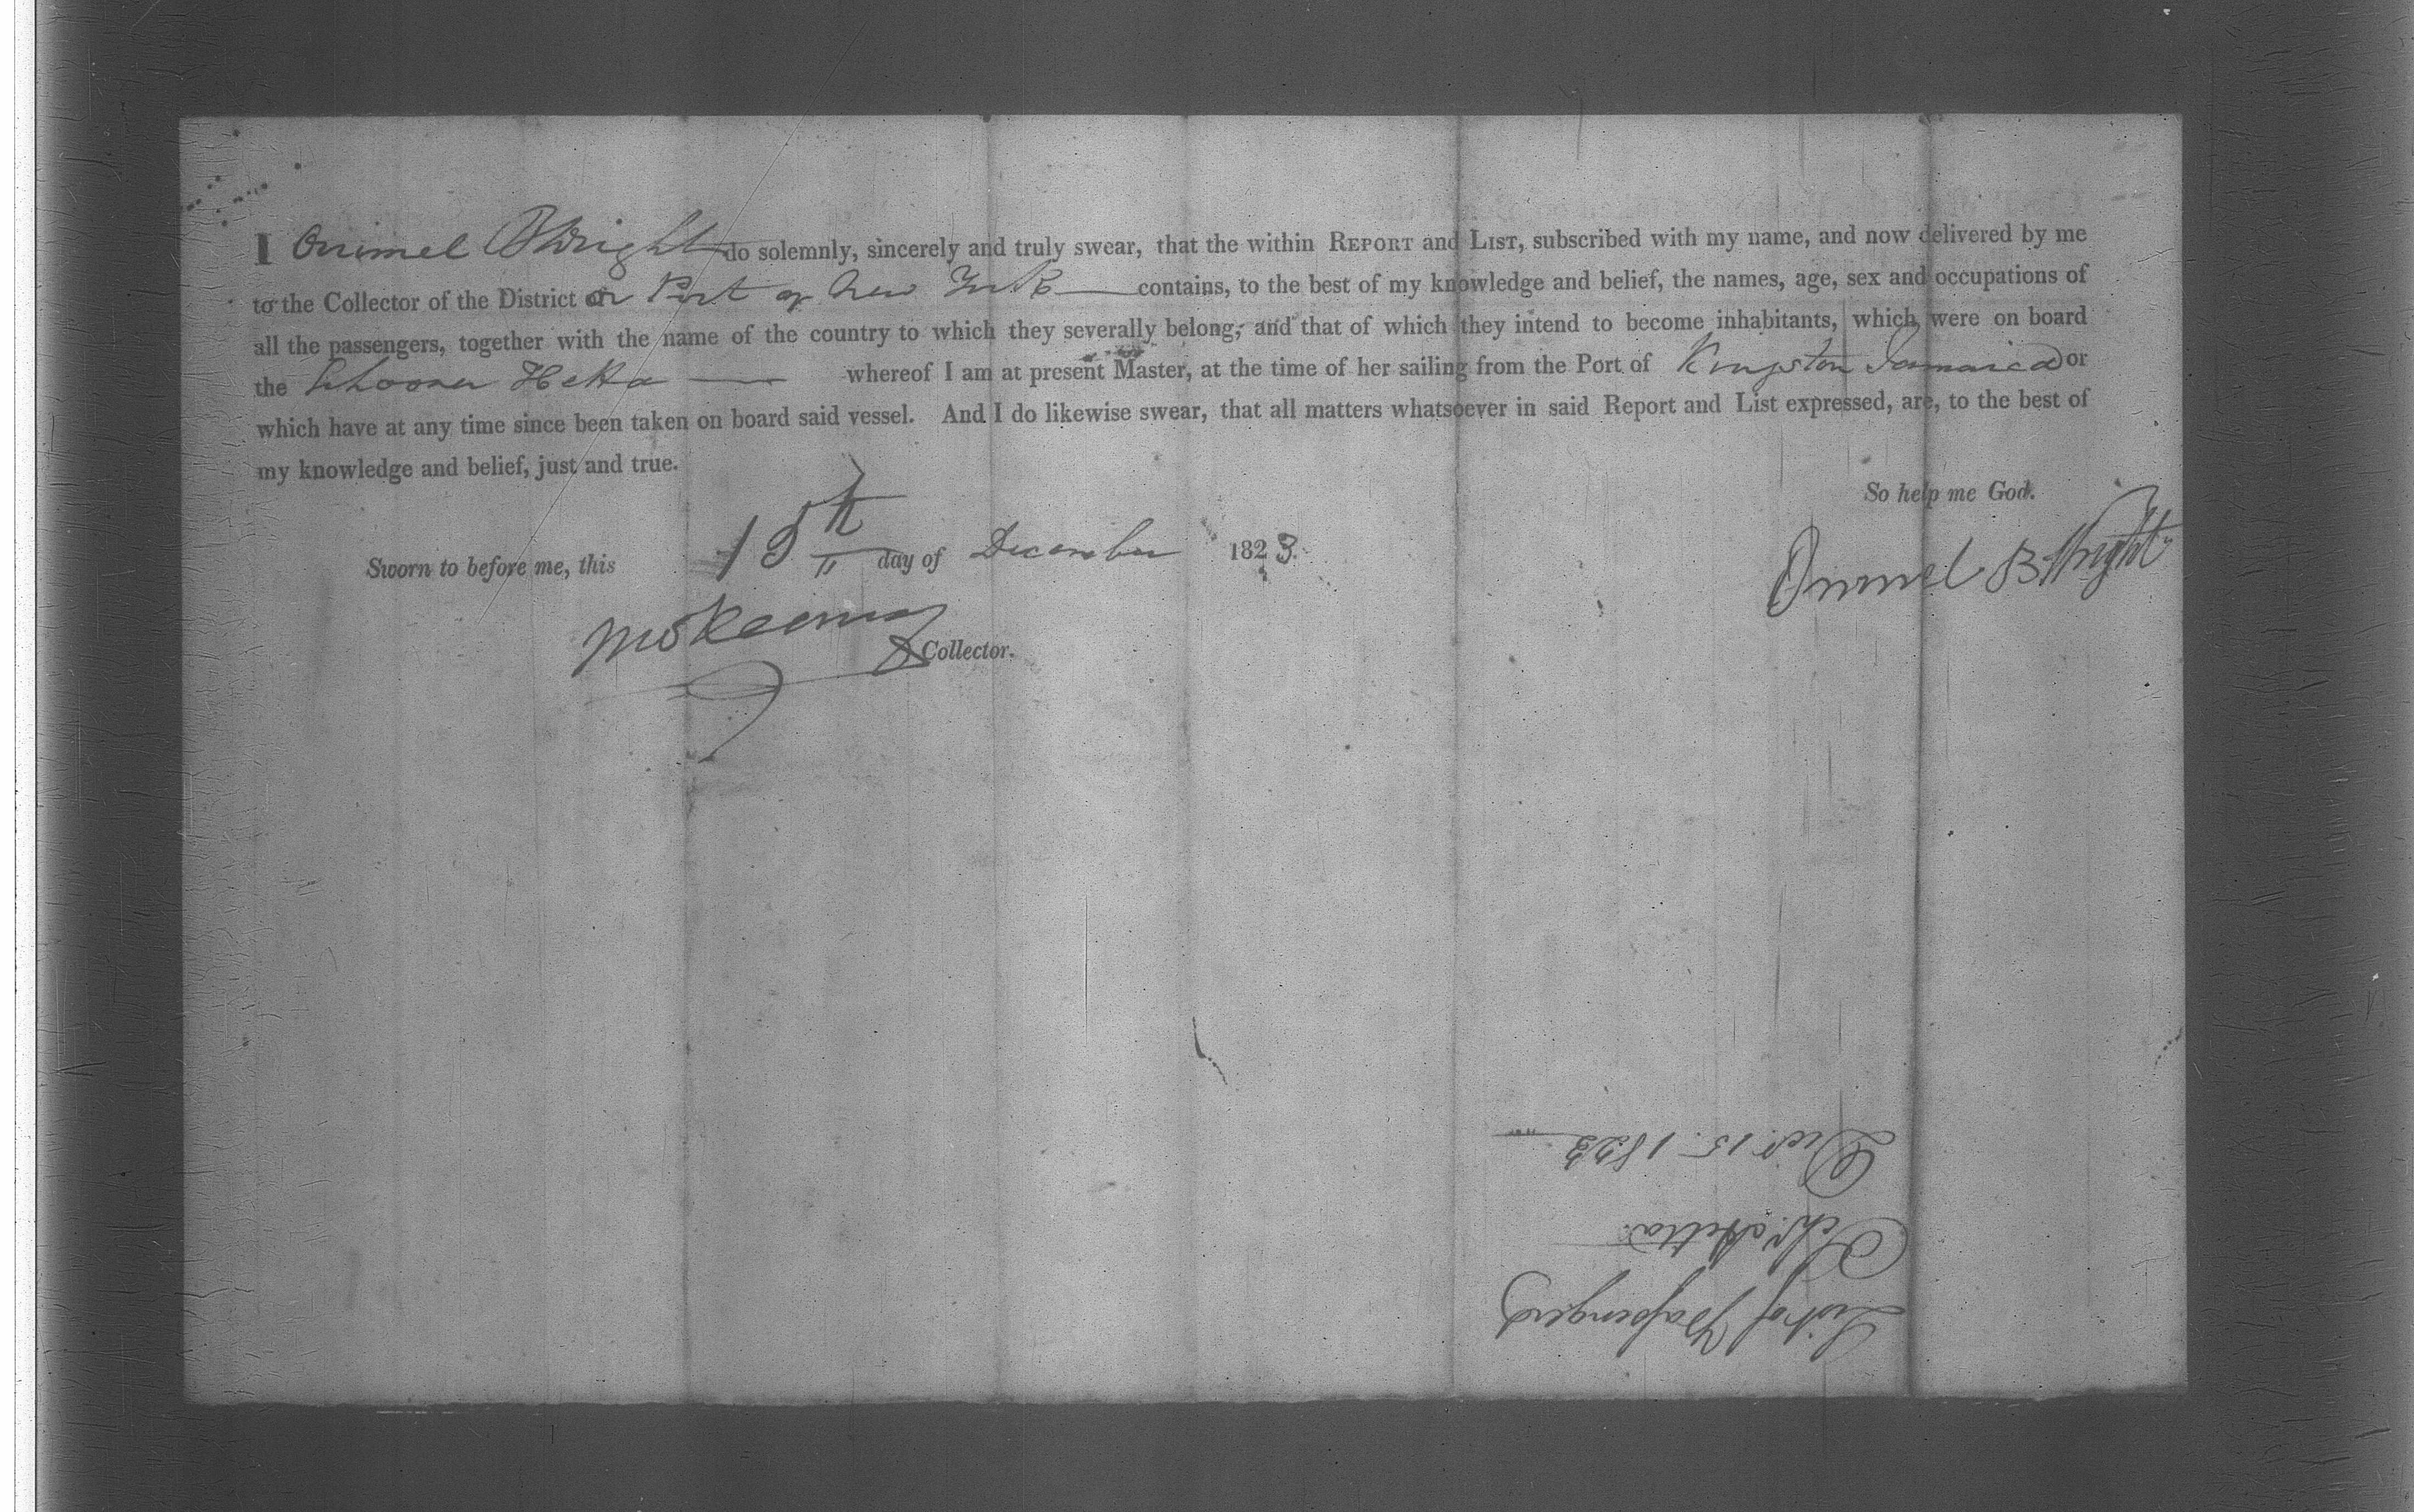 I Orimel B Wright do solemnly, sincerely and truly swear, that the within REPORT and LIST, subscribed with my name, and now delivered by me
to the Collector of the District or Port of New York contains, to the best of my knowledge and belief, the names, age, sex and occupations of
all the passengers, together with the name of the country to which they severally belong, and that of which they intend to become inhabitants, which were on board
the Schooner whereof I am at present Master, at the time of her sailing from the Port of Kingston Jamaica or
which have at any time since been taken on board said vessel. And I do likewise swear, that all matters whatsoever in said Report and List expressed, are, to the best of
my knowledge and belief, just and true.
So help me God.
Sworn to before me, this 15th day of December 1823.
Orimel B Wright
Collector.
List of Passengers
Schr.
Decr 15. 1823